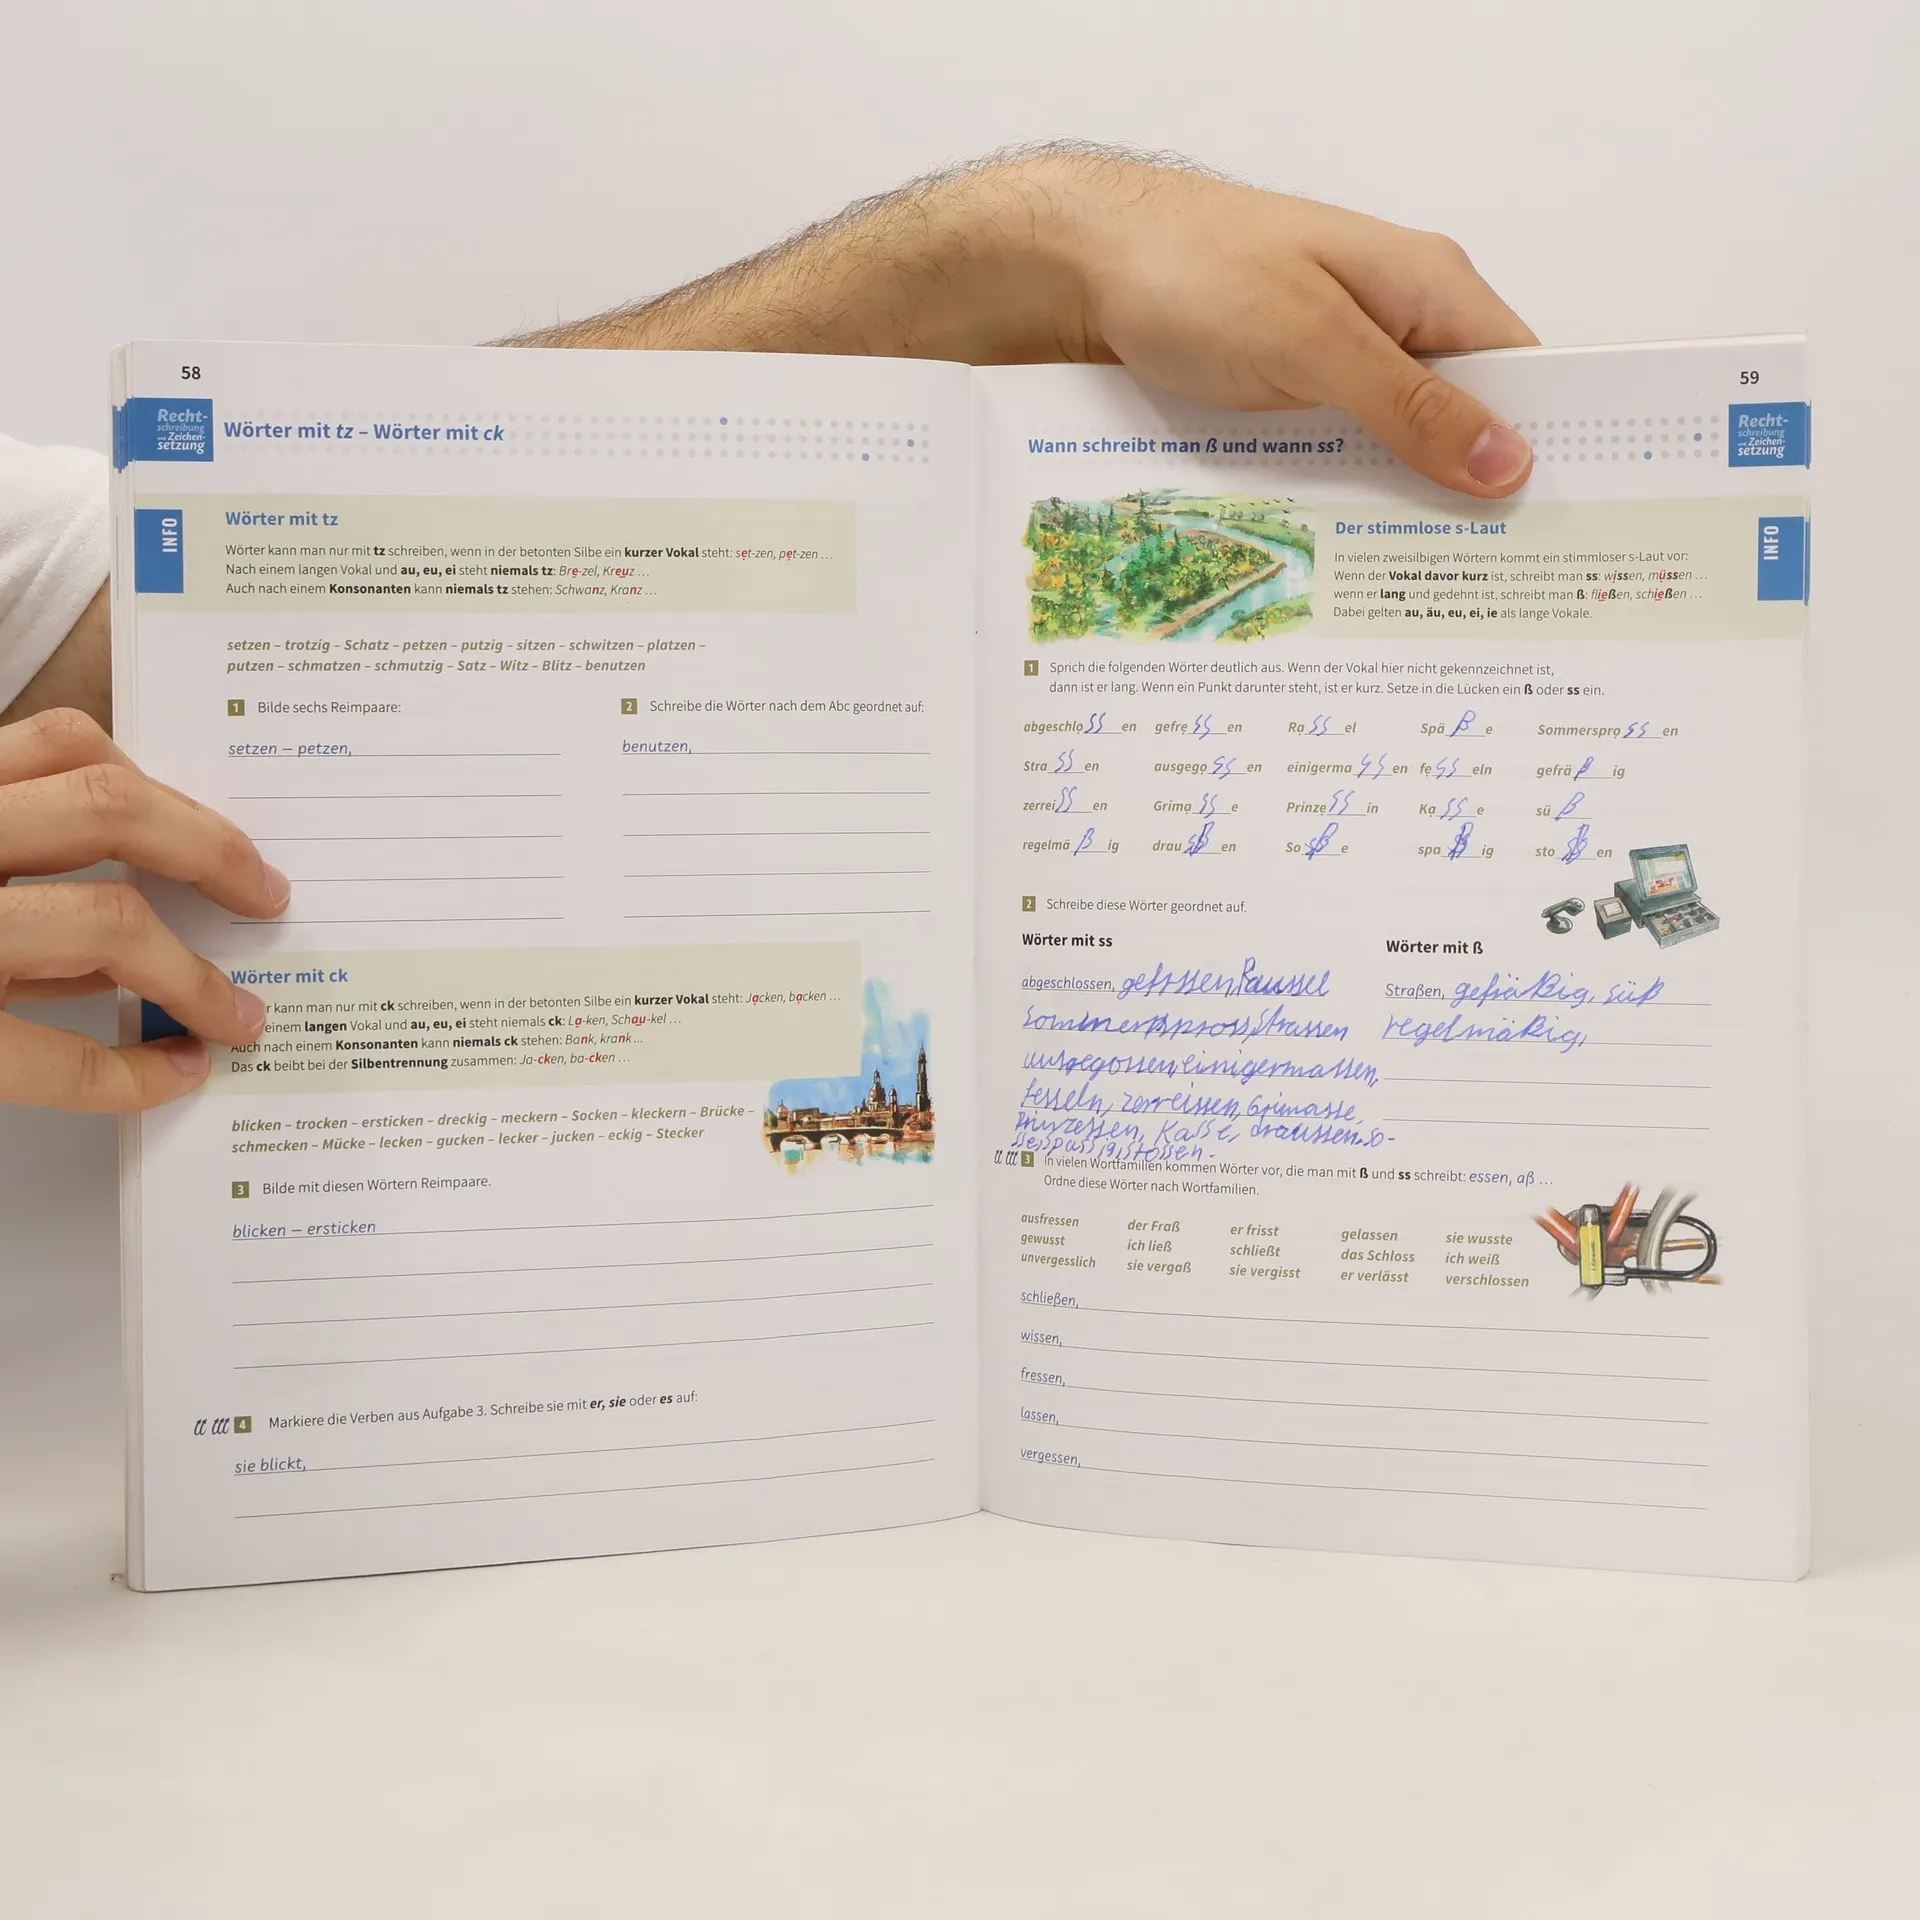 58
Recht-
schreibung
und Zeichen-
setzung
Wörter mit tz – Wörter mit ck
INFO
Wörter mit tz
Wörter kann man nur mit tz schreiben, wenn in der betonten Silbe ein kurzer Vokal steht: set-zen, pet-zen …
Nach einem langen Vokal und au, eu, ei steht niemals tz: Bre-zel, Kreuz …
Auch nach einem Konsonanten kann niemals tz stehen: Schwanz, Kranz …
setzen – trotzig – Schatz – petzen – putzig – sitzen – schwitzen – platzen –
putzen – schmatzen – schmutzig – Satz – Witz – Blitz – benutzen
1 Bilde sechs Reimpaare:
setzen – petzen,
2 Schreibe die Wörter nach dem Abc geordnet auf:
benutzen,
Wörter mit ck
r kann man nur mit ck schreiben, wenn in der betonten Silbe ein kurzer Vokal steht: Jacken, backen …
einem langen Vokal und au, eu, ei steht niemals ck: La-ken, Schau-kel …
Auch nach einem Konsonanten kann niemals ck stehen: Bank, krank …
Das ck beibt bei der Silbentrennung zusammen: Ja-cken, ba-cken …
blicken – trocken – ersticken – dreckig – meckern – Socken – kleckern – Brücke –
schmecken – Mücke – lecken – gucken – lecker – jucken – eckig – Stecker
3 Bilde mit diesen Wörtern Reimpaare.
blicken – ersticken
4 Markiere die Verben aus Aufgabe 3. Schreibe sie mit er, sie oder es auf:
sie blickt,
59
Recht-
schreibung
und Zeichen-
setzung
Wann schreibt man ß und wann ss?
INFO
Der stimmlose s-Laut
In vielen zweisilbigen Wörtern kommt ein stimmloser s-Laut vor:
Wenn der Vokal davor kurz ist, schreibt man ss: wissen, müssen …
wenn er lang und gedehnt ist, schreibt man ß: fließen, schießen …
Dabei gelten au, äu, eu, ei, ie als lange Vokale.
1 Sprich die folgenden Wörter deutlich aus. Wenn der Vokal hier nicht gekennzeichnet ist,
dann ist er lang. Wenn ein Punkt darunter steht, ist er kurz. Setze in die Lücken ein ß oder ss ein.
abgeschlo ss en gefre ss en Ra ss el Spä ß e Sommerspro ss en
Stra ss en ausgego ss en einigerma ss en fe ss eln gefrä ß ig
zerrei ss en Grima ss e Prinze ss in Ka ss e sü ß
regelmä ß ig drau ß en So ß e spa ß ig sto ß en
2 Schreibe diese Wörter geordnet auf.
Wörter mit ss
abgeschlossen,
Strassen
ausgegossen, einigermassen,
fesseln, zerreissen, Grimasse,
Prinzessen, Kasse, draussen, So-
sse, spassig, stossen.
Wörter mit ß
Straßen, gefräßig, süß
regelmäßig,
3 In vielen Wortfamilien kommen Wörter vor, die man mit ß und ss schreibt: essen, aß …
Ordne diese Wörter nach Wortfamilien.
ausfressen der Fraß er frisst gelassen sie wusste
gewusst ich ließ schließt das Schloss ich weiß
unvergesslich sie vergaß sie vergisst er verlässt verschlossen
schließen,
wissen,
fressen,
lassen,
vergessen,